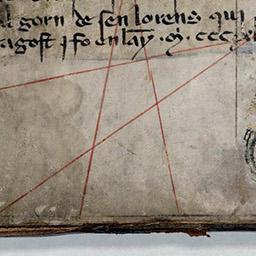 l gorn de sen lorens qui
agost y fo en lay · m · cccc